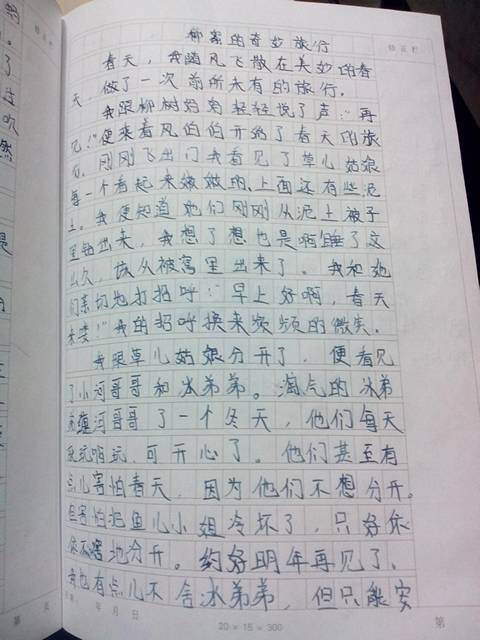 柳絮的奇妙旅行
春天,我随风飞散在美妙的春
天,做了一次前所未有的旅行。
我跟柳树妈妈轻轻说了声:“再
见!”便乘着风伯伯开始了春天的旅
行。刚刚飞出门我看见了草儿姑娘
每一个看起来嫩嫩的,上面还有些泥
土。我便知道她们刚刚从泥土被子
里钻出来,我想了想也是啊睡了这
么久,该从被窝里出来了。我和她
们亲切地打招呼:“早上好啊,春天
来喽!”我的招呼换来频频的微笑。
我跟草儿姑娘分开了,便看见
了小河哥哥和冰弟弟。淘气的冰弟
弟缠河哥哥了一个冬天,他们每天
玩啊玩,可开心了。他们甚至有
点儿害怕春天,因为他们不想分开。
但害怕把鱼儿小姐冷坏了,只好依
依不舍地分开。约好明年再见了、
我也有点儿不舍冰弟弟,但只能安
第 页 年 月 日
20×15=300
第